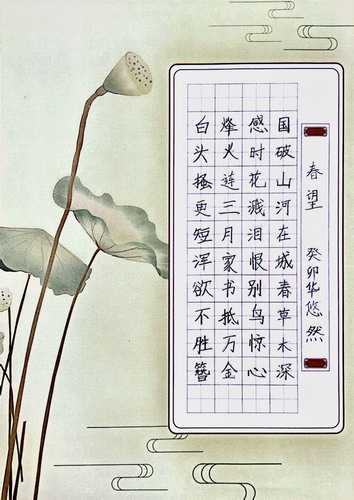 春望 癸卯华悠然
国破山河在城春草木深
感时花溅泪恨别鸟惊心
烽火连三月家书抵万金
白头搔更短浑欲不胜簪